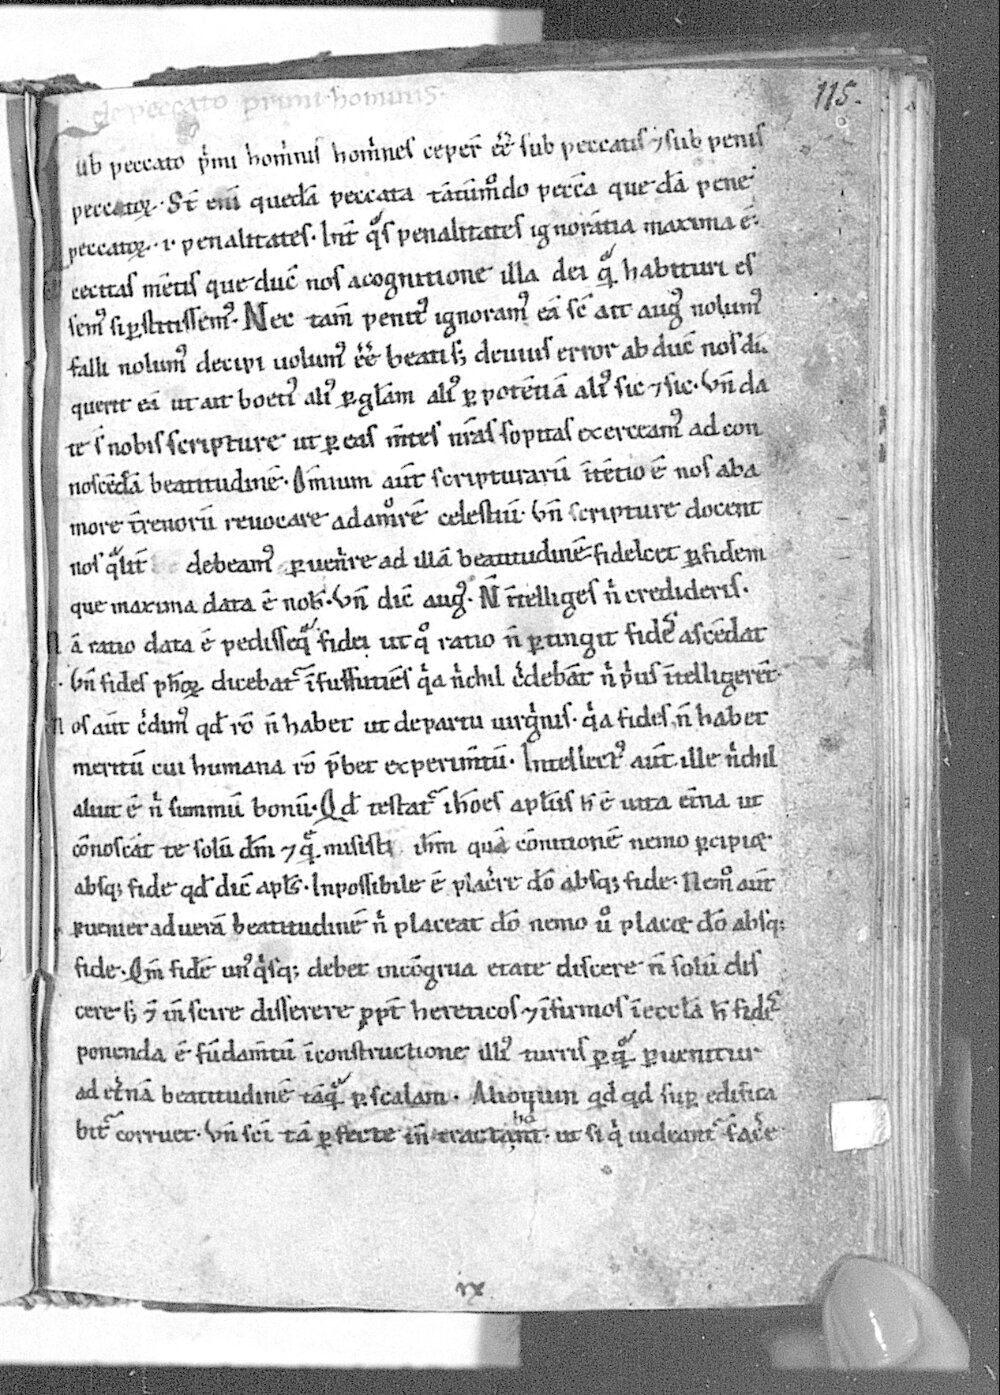 de peccato primi hominis.
115.
ub peccato p̄mi hom̄nis hom̄nes ceper̄ eē̄ sub peccatis ⁊ sub penis
peccatoꝝ. St̄ eni quedā peccata tātūmodo peccā quedā pene
peccatoꝝ .i. penalitates. Int̄ qͣs penalitates ignorātia maxima ē.
cecitas mētis que duc̄ nos a cognitione illa dei qͣ̄ habituri es
semꝰ si ꝑstitissemꝰ. Nec tam̄ penitꝰ ignoramꝰ eā sc̄ ait augꝰ nolumꝰ
falli nolumꝰ decipi uolumꝰ eē̄ beati sꝫ deuius error abduc̄ nos di
querit eā ut ait boetiꝰ aliꝰ ꝑ glām aliꝰ ꝑ potētiā aliꝰ sic ⁊ sic. Vn̄ da
te s̄ nobis scripture ut ꝑ eas m̄tes nr̄as sopitas exerceamꝰ ad con
noscēdā beatitudinē. Om̄ium aut̄ scripturarū ītētio ē nos ab a
more t̄renorū reuocare ad amorē celestiū. Vn̄ scripture docent
nos qͣlit̄ debeamꝰ ꝑuen̄re ad illā beatitudinē fidelcet ꝑ fidem
que maxima data ē nob̄. Vn̄ dic̄ augꝰ. N̄ ītelliges n̄ credideris.
ā ratio data ē pedisseqͣ fidei ut qͦ ratio n̄ ꝑtingit fidēs ascēdat
Vn̄ fides ph̄oꝝ dicebat̄ īsufficiēs qͥa nichil c̄debāt nͥ pͥus ītelligerēt
os aut̄ c̄dimꝰ qd̄ rō n̄ habet ut de partu uirgͥnis. qͥa fides n̄ habet
meritū cui humana rō p̄bet experim̄tū. Intellectꝰ aut̄ ille nichil
aliut ē nͥ summū bonū. Qd̄ testat̄ ioh̄es apl̄us h̄ ē uita et̄na ut
cōnoscāt te solū dm̄ ⁊ qͣ̄ misisti ih̄m quā cōnitionē nemo ꝑcipit
absqꝫ fide qd̄ dic̄ apl̄s. Inpossibile ē plac̄re dō absqꝫ fide. Nemo aut̄
ꝑueniet ad uerā beatitudinē nͥ placeat dō nemo uͦ placet dō absqꝫ
fide. Qm̄ fidē unꝰqͥsqꝫ debet incōgrua etate discere n̄ solū dis
cere sꝫ ⁊ in scire disserere ꝓpt̄ hereticos ⁊ īfirmos ī eccl̄a h̄ fidēs
ponenda ē fūdam̄tū ī constructione illiꝰ turris ꝑ qͣ̄ ꝑuenitur
ad et̄nā beatitudinē tāqͣ̄ ꝑ scalam. Alioquin qd̄ qd̄ suꝑ edifica
bit̄ corruet. Vn̄ sc̄i tā ꝑfecte in tractant. ut si qͥ uideant̄ fac̄e
ix